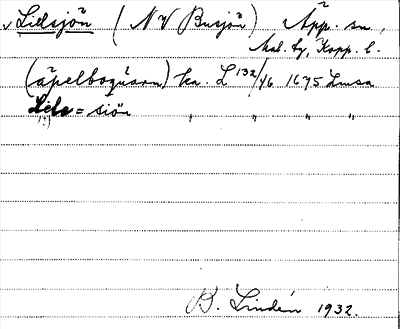 Lilsjön (NV Busjön) Äpp. sn,
Mal. by, Kopp. l.
(äpelboqúarn) ka. L 132/46 1675 Lmsa
Lils = siön " " " "
(?)
B. Lindén 1932.